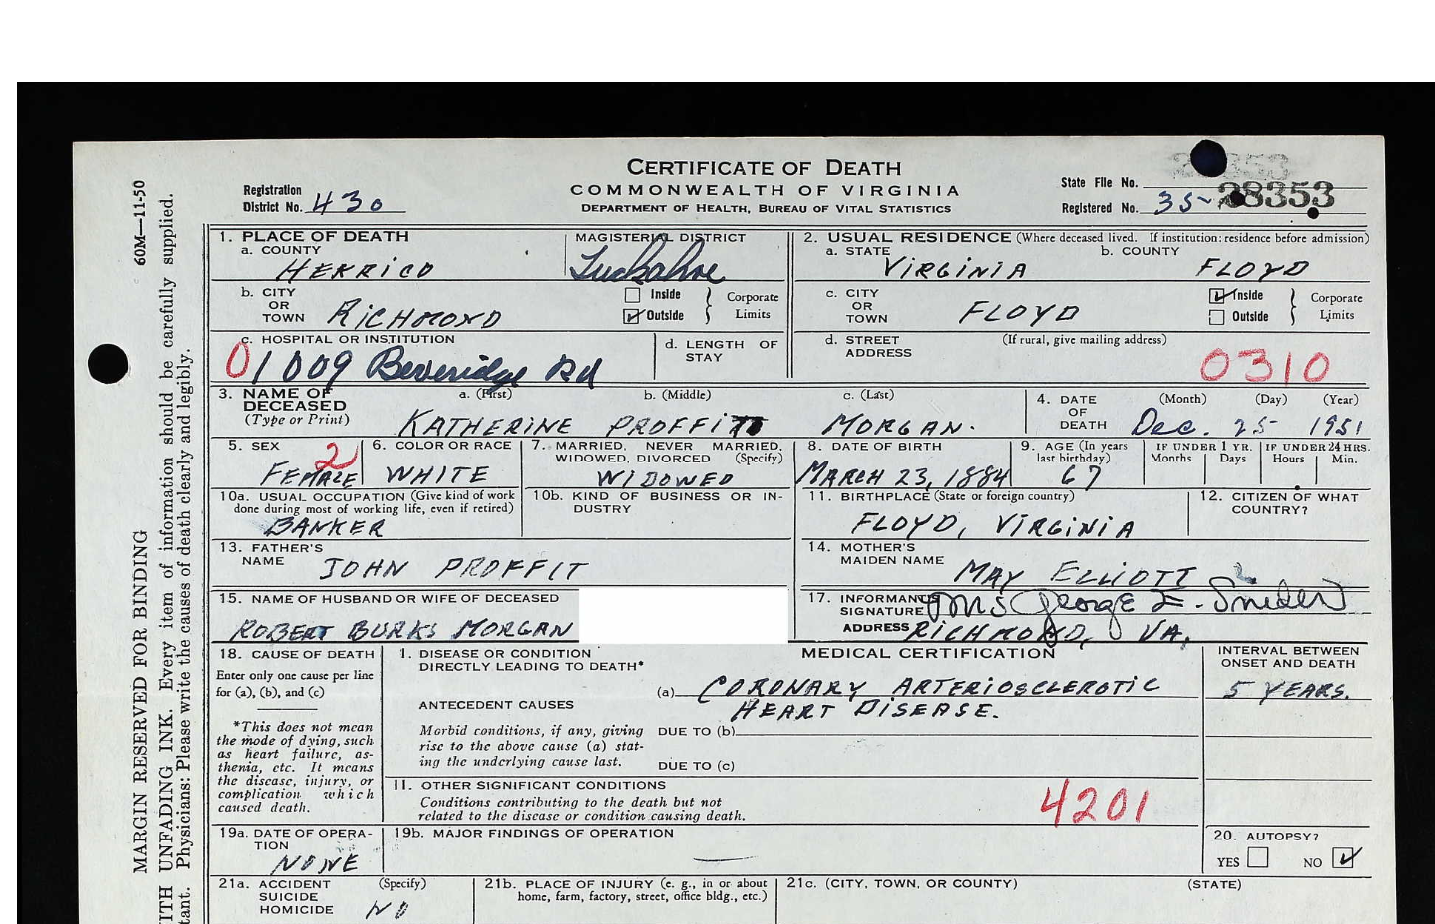 CERTIFICATE OF DEATH
COMMONWEALTH OF VIRGINIA
DEPARTMENT OF HEALTH, BUREAU OF VITAL STATISTICS
Registration District No. 430
State File No. 28353
Registered No. 35-
60M—11-50
MARGIN RESERVED FOR BINDING
UNFADING INK. Every item of information should be carefully supplied.
Physicians: Please write the causes of death clearly and legibly.
1. PLACE OF DEATH
a. COUNTY
HENRICO
MAGISTERIAL DISTRICT
Tuckahoe
b. CITY OR TOWN
RICHMOND
Inside
Outside
Corporate Limits
c. HOSPITAL OR INSTITUTION
0 1009 Beveridge Rd
d. LENGTH OF STAY
2. USUAL RESIDENCE (Where deceased lived. If institution: residence before admission)
a. STATE
VIRGINIA
b. COUNTY
FLOYD
c. CITY OR TOWN
FLOYD
Inside
Outside
Corporate Limits
d. STREET ADDRESS
(If rural, give mailing address)
0310
3. NAME OF DECEASED
(Type or Print)
a. (First)
b. (Middle)
c. (Last)
KATHERINE PROFFIT MORGAN.
4. DATE OF DEATH
(Month) (Day) (Year)
Dec. 25 1951
5. SEX
2
FEMALE
6. COLOR OR RACE
WHITE
7. MARRIED, NEVER MARRIED, WIDOWED, DIVORCED (Specify)
WIDOWED
8. DATE OF BIRTH
MARCH 23, 1884
9. AGE (In years last birthday)
67
IF UNDER 1 YR.
Months Days
IF UNDER 24 HRS.
Hours Min.
10a. USUAL OCCUPATION (Give kind of work done during most of working life, even if retired)
BANKER
10b. KIND OF BUSINESS OR INDUSTRY
11. BIRTHPLACE (State or foreign country)
FLOYD, VIRGINIA
12. CITIZEN OF WHAT COUNTRY?
13. FATHER'S NAME
JOHN PROFFIT
14. MOTHER'S MAIDEN NAME
MAY ELLIOTT
15. NAME OF HUSBAND OR WIFE OF DECEASED
ROBERT BURKS MORGAN
17. INFORMANT'S SIGNATURE
Mrs George E. Snider
ADDRESS RICHMOND, VA.
18. CAUSE OF DEATH
Enter only one cause per line for (a), (b), and (c)
*This does not mean the mode of dying, such as heart failure, asthenia, etc. It means the disease, injury, or complication which caused death.
MEDICAL CERTIFICATION
I. DISEASE OR CONDITION DIRECTLY LEADING TO DEATH*
(a) CORONARY ARTERIOSCLEROTIC
HEART DISEASE.
ANTECEDENT CAUSES
Morbid conditions, if any, giving rise to the above cause (a) stating the underlying cause last.
DUE TO (b)
DUE TO (c)
INTERVAL BETWEEN ONSET AND DEATH
5 YEARS.
II. OTHER SIGNIFICANT CONDITIONS
Conditions contributing to the death but not related to the disease or condition causing death.
4201
19a. DATE OF OPERATION
NONE
19b. MAJOR FINDINGS OF OPERATION
20. AUTOPSY?
YES NO
21a. ACCIDENT SUICIDE HOMICIDE
(Specify)
NO
21b. PLACE OF INJURY (e. g., in or about home, farm, factory, street, office bldg., etc.)
21c. (CITY, TOWN, OR COUNTY)
(STATE)